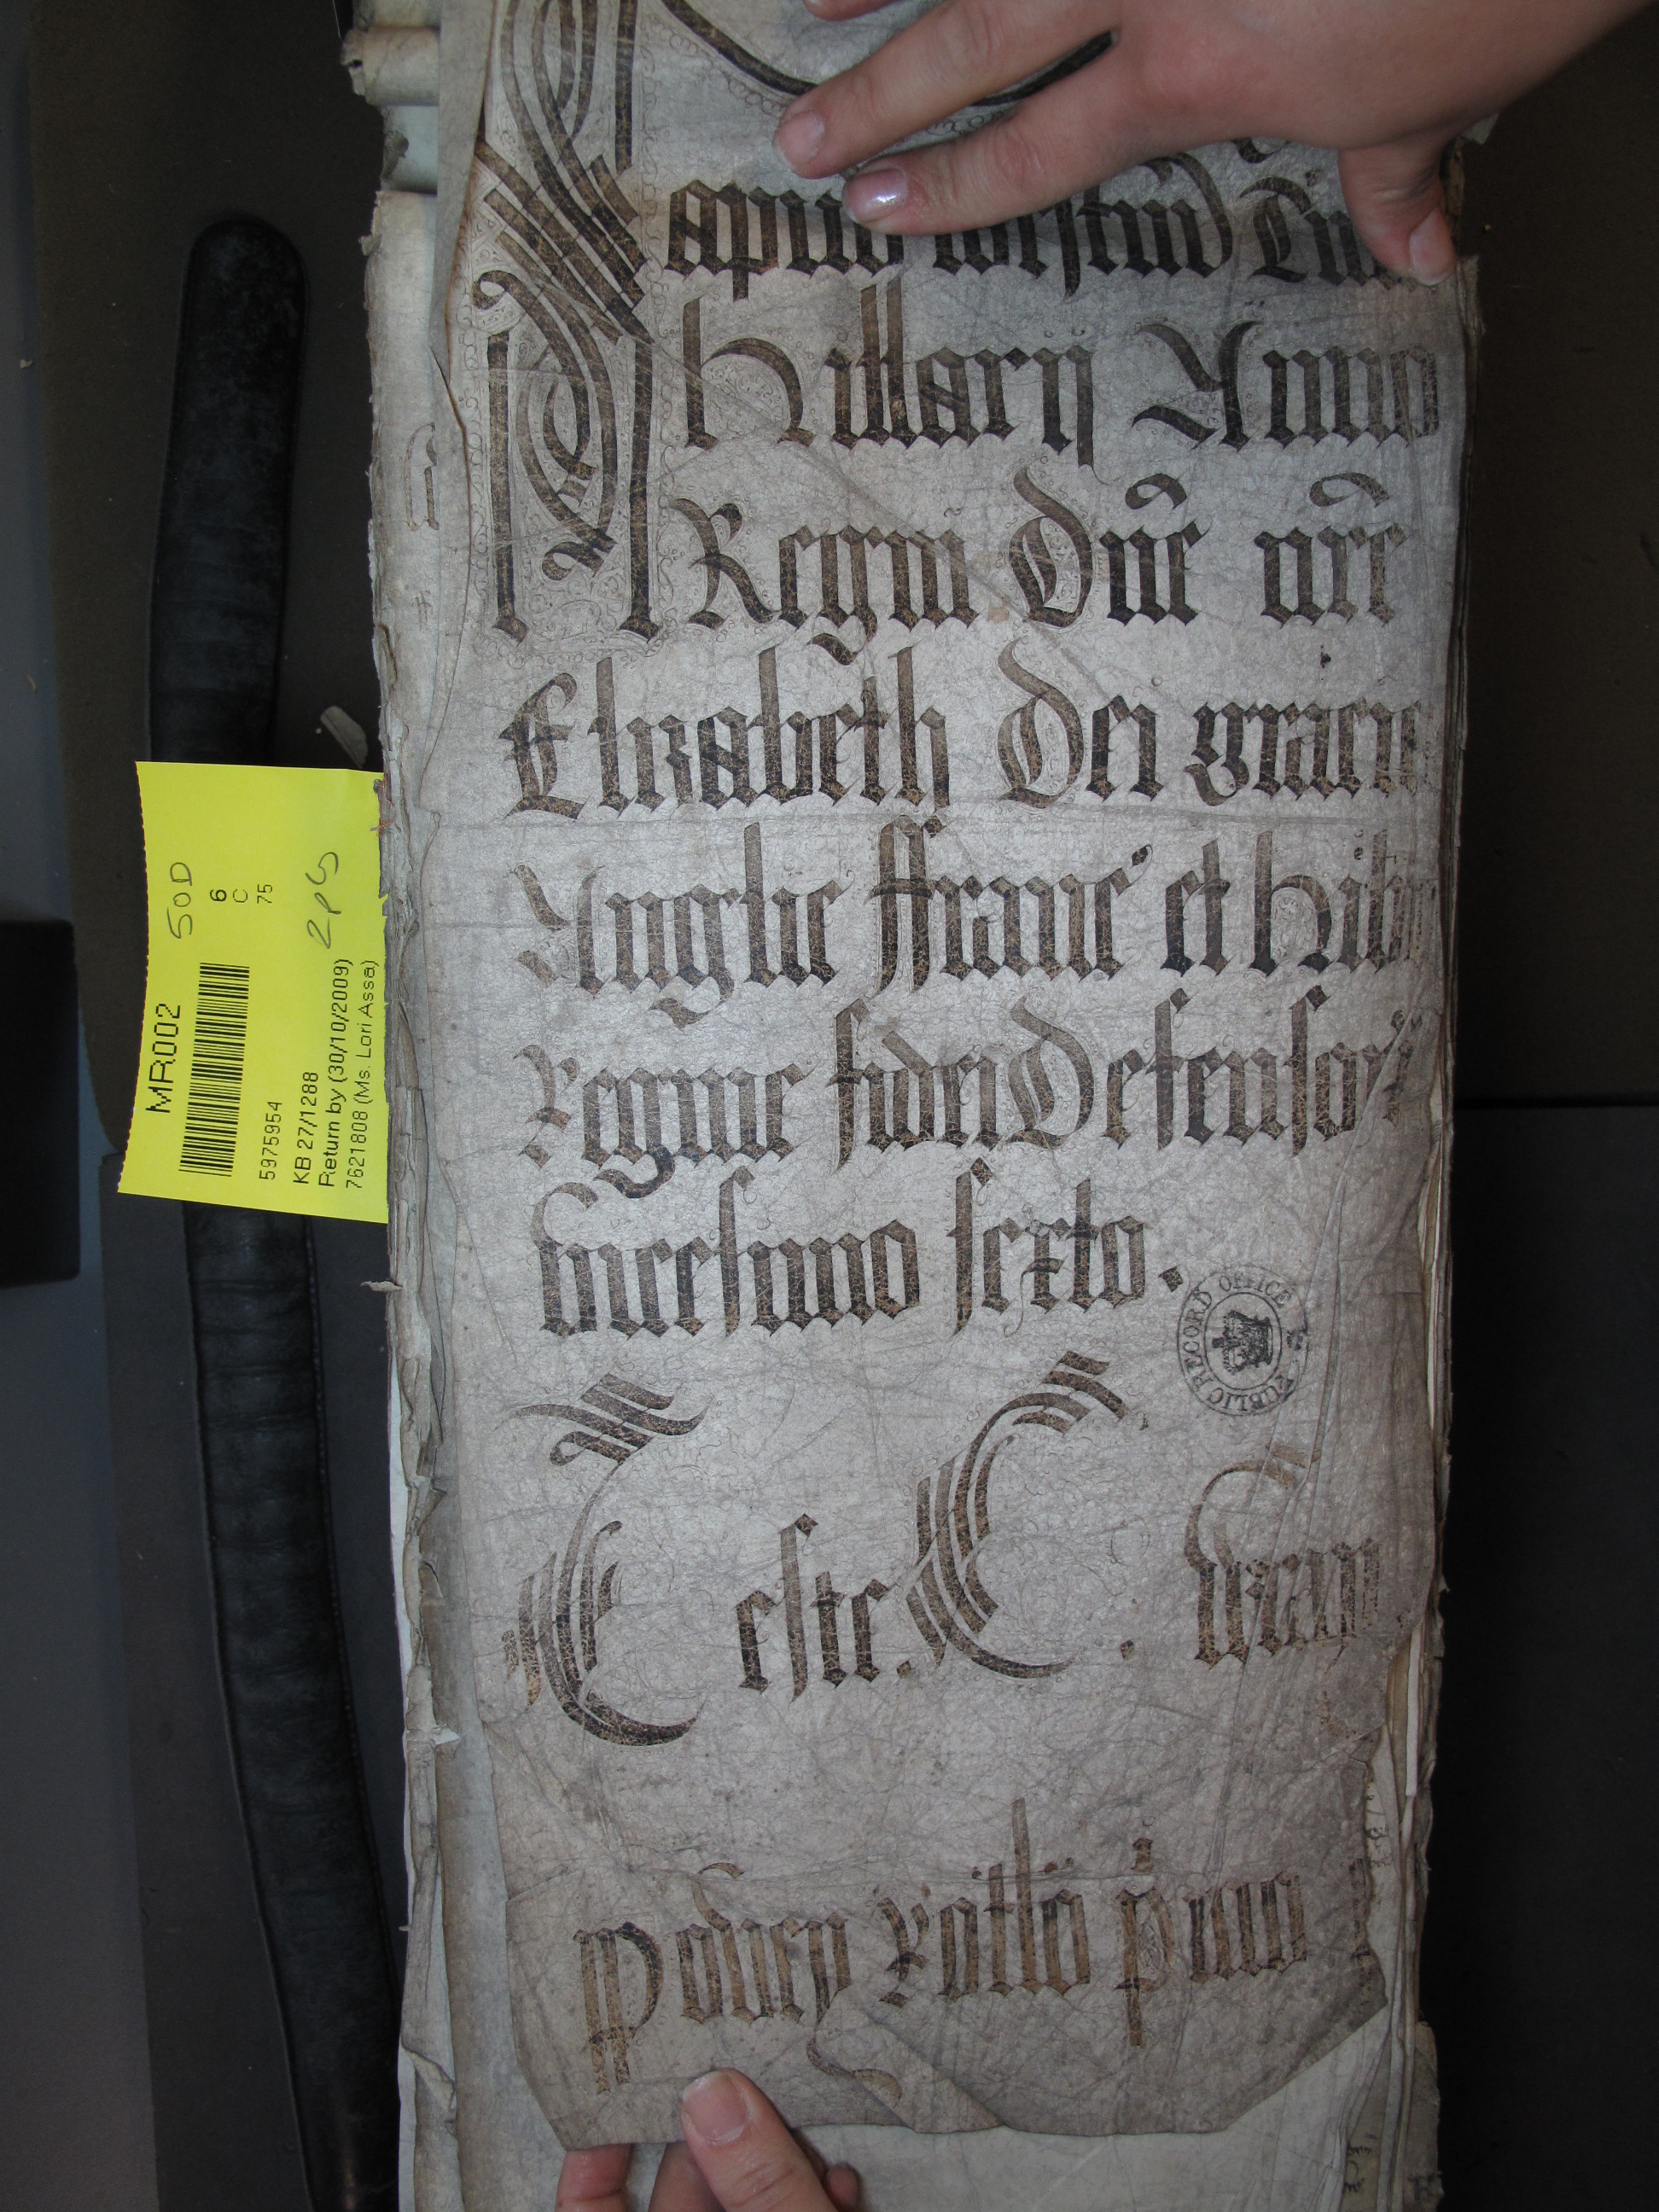 apud westm
Hillarij Anno
Regni Dñe nr̃e
Elizabeth Dei gracie
Anglie ffranc' et Hib
Regine fidei Defensor
vicesimo sexto.
Teste. C. Wray
Rotlo primo
PUBLIC RECORD OFFICE
MR002 50D
6
C
75
5975954
KB 27/1288
Return by (30/10/2009)
7621808 (Ms. Lori Assa)